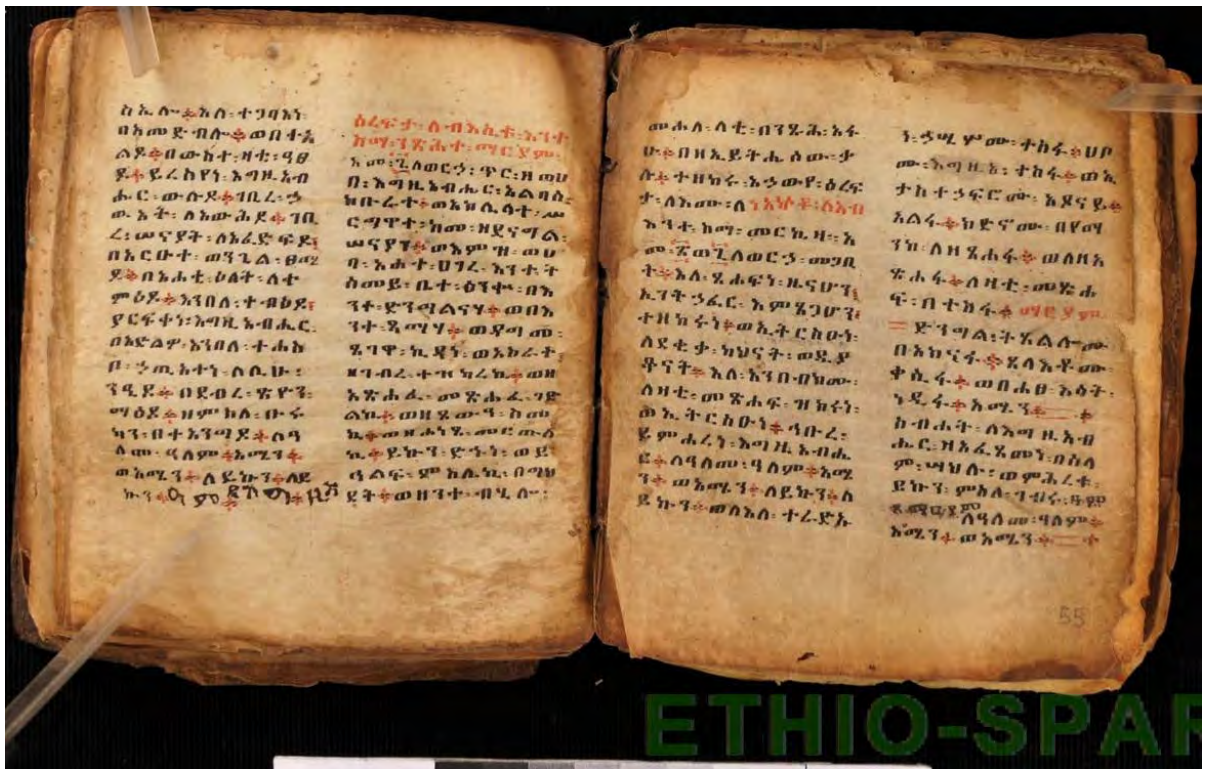 ስኢሎ፨እለ፡ተጋባእነ፡
በአመድ፡ብሎ፨ወበተፈ
ልዶ፨በውእተ፡ዛቲ፡ዓፀ
ድ፨ይረስየነ፡እግዚአብ
ሔር፡ውሉዶ፨ገቢረ፡ኃ
ጢአት፡ለአውሕዶ፨ገቢ
ረ፡ሠናያት፡ለአፈድፍዶ፤
በአርዑተ፡ወንጌል፡ፀሚ
ዶ፨በአሐቲ፡ዕለት፡ለተ
ምዕዶ፨እንበለ፡ተብዕዶ፤
ያርፍተነ፡እግዚአብሔር፡
በአድልዎ፡እንበለ፡ተሐስ
ቦ፡ኃጢአተነ፡ለሊሁ፡
ንዒዶ፨በደብረ፡ጽዮን፡
ማዕዶ፨ዘምስለ፡ቡሩ
ካን፡በተአንግዶ፨ለዓ
ለመ፡ዓለም፨አሜን፨
ወአሜን፨ለይኩን፨ለይ
ኩን፨
ዕረፍታ፡ለብእሲቶ፡እንተ
ከማ፡ንጽሕተ፡ማርያም፡
አመ፡፮ለወርኃ፡ጥር፡ዘወሀ
ቦ፡እግዚአብሔር፡አልባሰ፡
ክቡራተ፨ወአክሊላተ፡ሥ
ርግዋተ፡ከመ፡ዘደናግል፡
ሠናያን፨ወእምዝ፡ወሀ
ባ፡አሐተ፡ሀገረ፡እንተ፡ት
ስመይ፡ቤተ፡ዕንቍ፡በእ
ንተ፡ድንግልናሃ፨ወበእ
ንተ፡ጻማሃ፨ወዳግመ፡
ጼገዋ፡ኪዳነ፡ወአክራት፡
ዘገብረ፡ተዝካረኪ፨ወዘ
አጽሐፈ፡መጽሐፈ፡ገድ
ልኪ፨ወዘጸውዓ፡ስመ
ኪ፨ወዘሐነፄ፡መርጡለ
ኪ፨ይኩን፡ድኅነ፡ወይ
ዓልፍ፡ምስሌኪ፡በግህ
ደት፨ወዘንተ፡ብሂሎ፡
መሐለ፡ላቲ፡በንጹሕ፡አፋ
ሁ፨በዘኢይትሔሰው፡ቃ
ሉ፨ተዘከሩ፡አኃውየ፡ዕረፍ
ታ፡ለእሙ፡ለነአኵቶ፡ለአብ
እንተ፡ከማ፡መርኪዛ፡አ
መ፡፳ወ፫ለወርኃ፡መጋቢ
ት፨እለ፡ጸሐፍነ፡ዜናሁን፤
ኢንትኃፈር፡እምጼጋሁን፤
ተዘከሩነ፨ወኢትርስዑነ፡
ለደቂቃ፡ክህናት፡ወዲያ
ቆናት፨እለ፡አንበብክሙ፡
ለዛቲ፡መጽሐፍ፡ዝክሩነ፡
ወኢትርስዑነ፨ዓቡረ፡
ይምሐረነ፡እግዚአብሔ
ር፨ለዓለመ፡ዓለም፨አሜ
ን፨ወአሜን፨ለይኩን፨ለ
ይኩን፨ወለእለ፡ተራድኡ
ነ፡ኃሢሦሙ፡ተስፋ፨ሀቦ
ሙ፡እግዚአ፡ተስፋ፨ወኢ
ታስተኃፍሮሙ፡አዶናይ፨
አልፋ፨ክድኖሙ፡በየማ
ንከ፡ለዘጸሐፋ፨ወለዘአ
ጽሐፋ፨ለዛቲ፡መጽሐ
ፍ፡በተስፋ፨ማርያም
ድንግል፡ትጸልሎሙ
በአክናፋ፨ጸላእቶሙ፡
ቀሲፋ፨ወበሐፀ፡እሳት፡
ነዲፋ፨አሜን፨
ስብሐት፡ለእግዚአብ
ሔር፡ዘአፈጸመነ፡በሰላ
ም፡ሣህሉ፡ወምሕረቱ፡
ይኩን፡ምስለ፡ገብሩ፡
ለዓለመ፡ዓለም፨
አሜን፨ወአሜን፨
55
ETHIO-SPAR